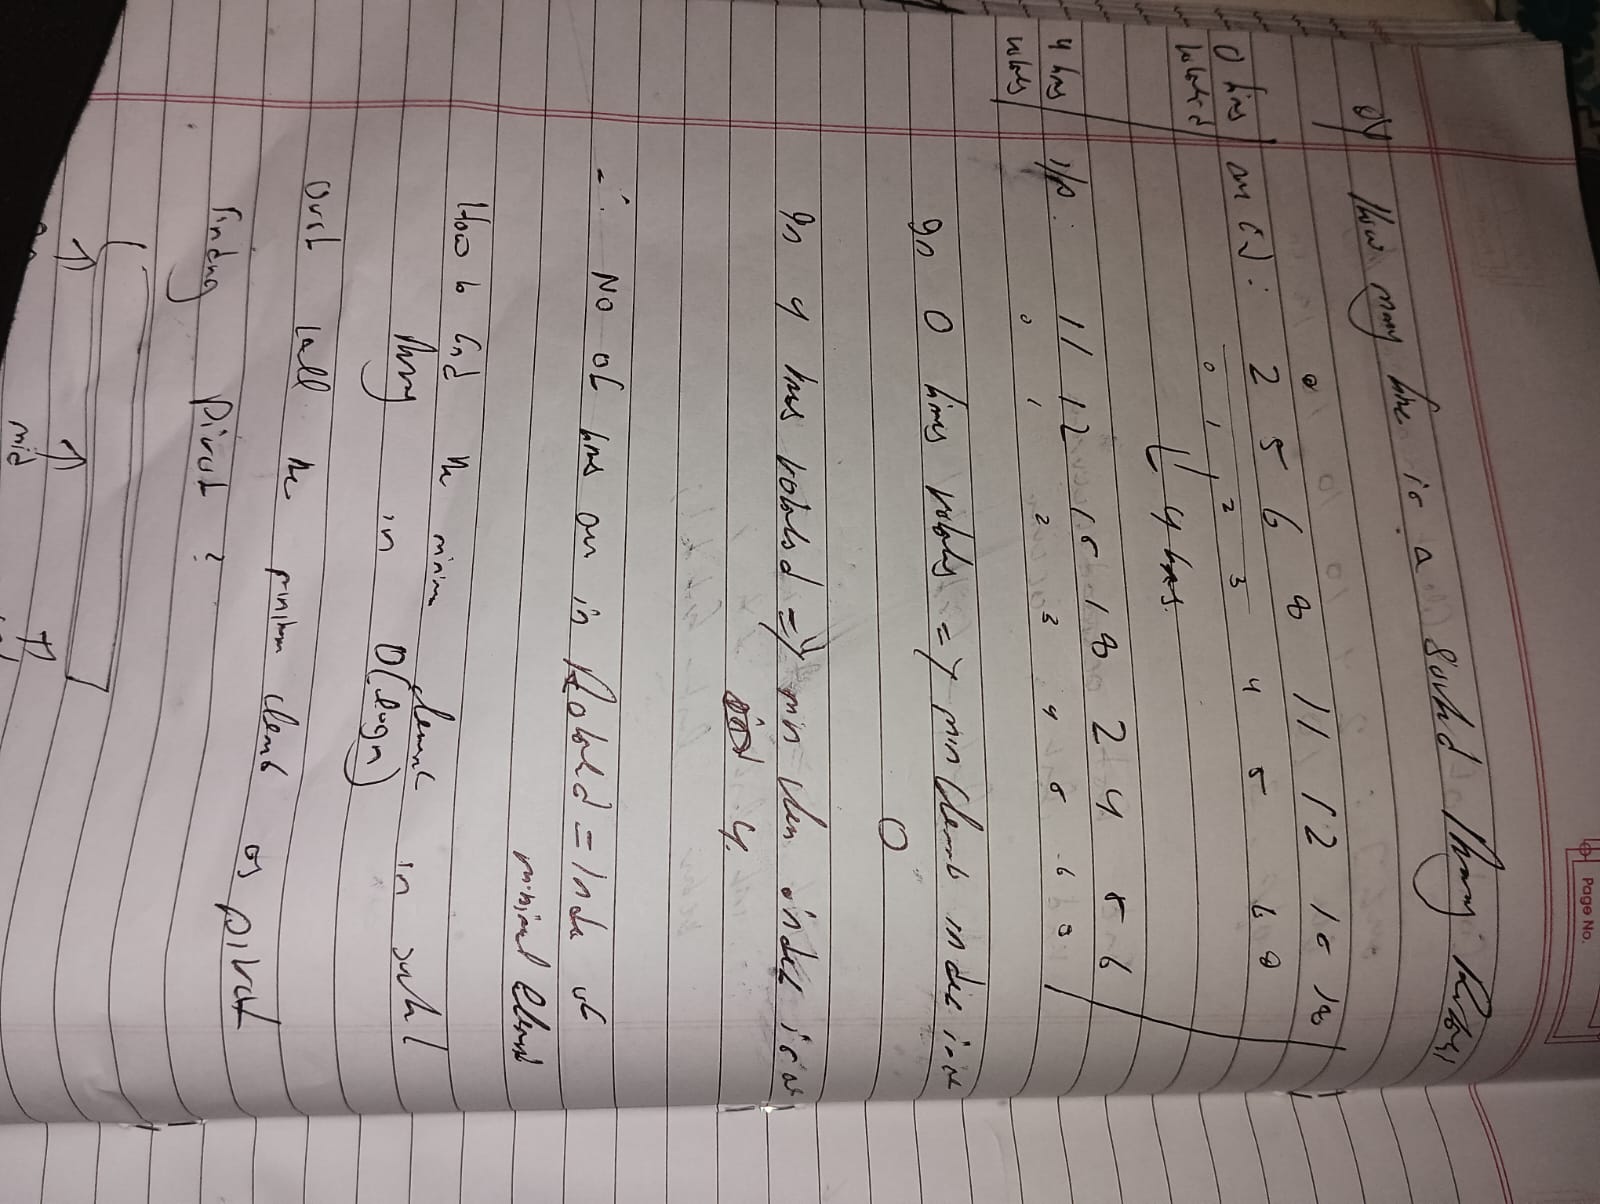 Page No.
Q) How many time is a Sorted Array Rotated
0 times rotated
arr[]: 2 5 6 8 11 12 15 18
0 1 2 3 4 5 6
4 times.
4 times rotated
i/p: 11 12 15 18 2 4 5 6
0 1 2 3 4 5 6
In 0 times rotated => min element index is at
0
In 4 times rotated => min elem index is at
4.
∴ No of times arr in Rotated = index of
minimal element
How to find the minimum element in sorted
Array in O(logn)
Just call the minimum element as pivot
Finding Pivot ?
mid